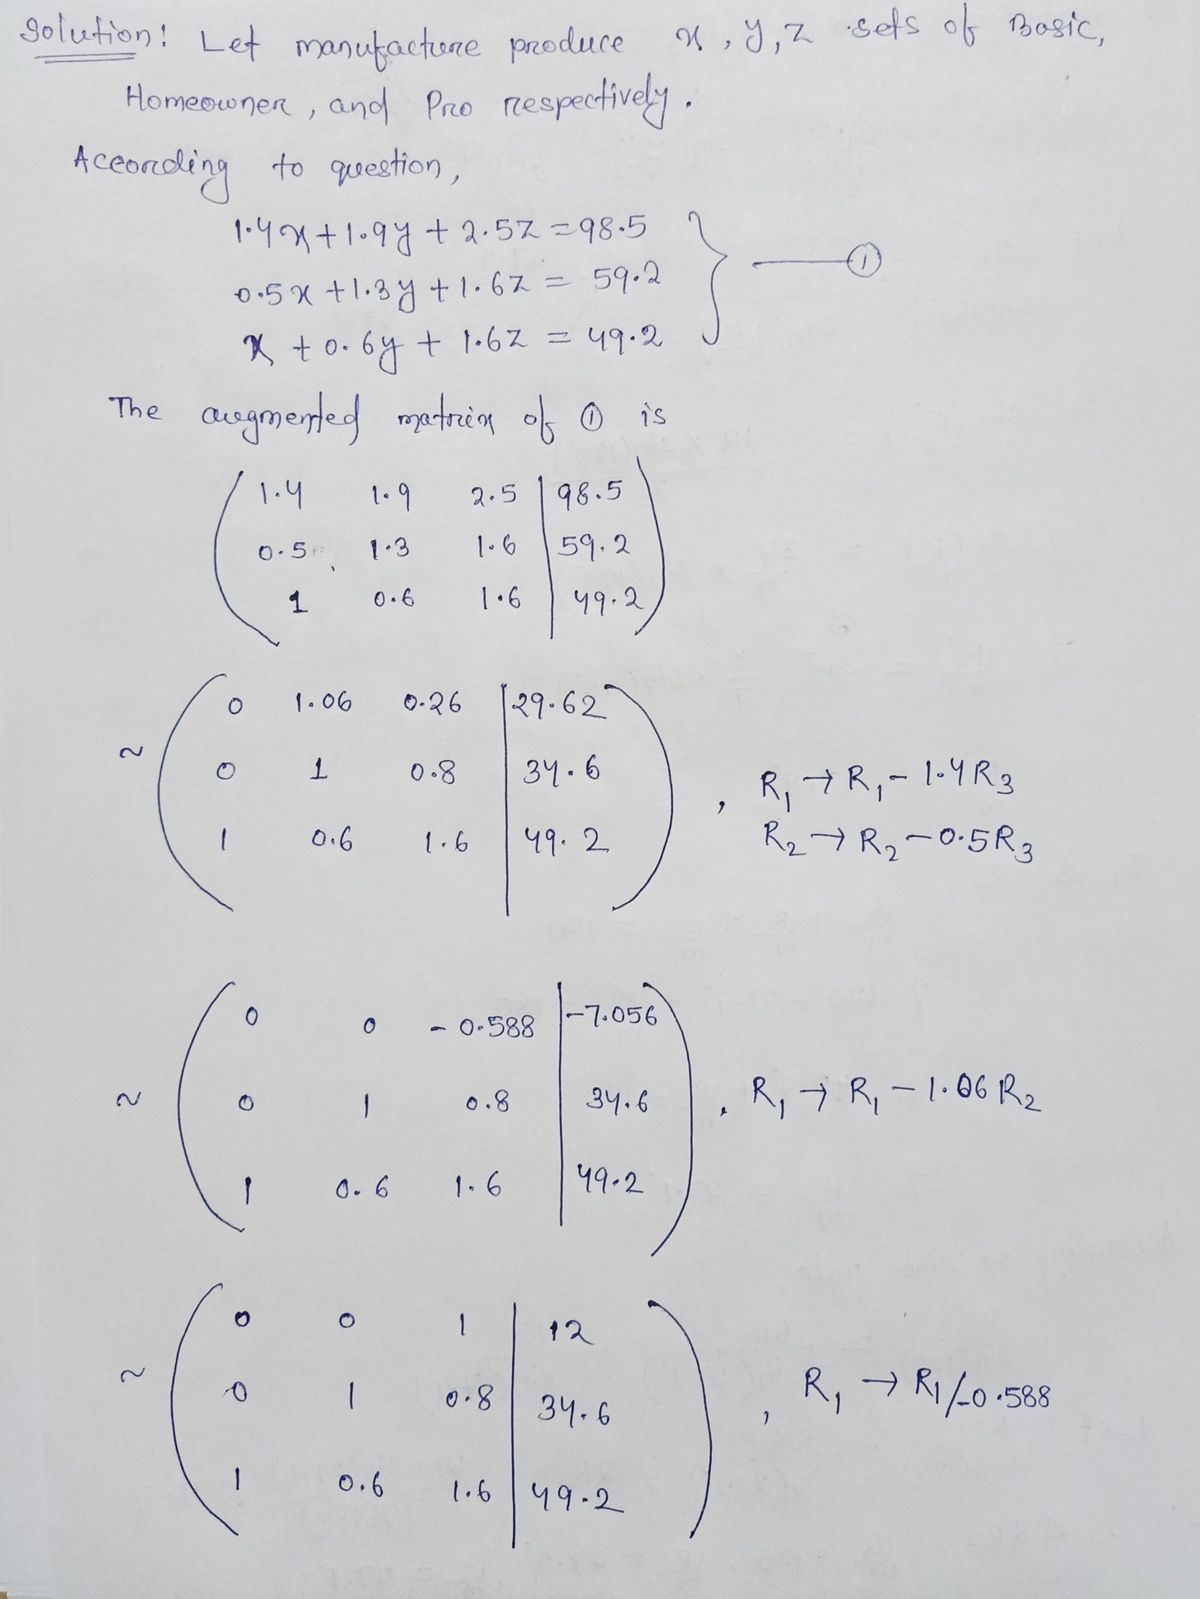 Solution! Let manufacture produce x, y, z sets of Basic,
Homeowner, and Pro respectively.
According to question,
1.4x + 1.9y + 2.5z = 98.5
0.5x + 1.3y + 1.6z = 59.2 } — ①
x + 0.6y + 1.6z = 49.2
The augmented matrix of ① is
( 1.4 1.9 2.5 | 98.5
0.5 1.3 1.6 | 59.2
1 0.6 1.6 | 49.2 )
~ ( 0 1.06 0.26 | 29.62
0 1 0.8 | 34.6
1 0.6 1.6 | 49.2 ) , R₁ → R₁ - 1.4R₃
R₂ → R₂ - 0.5R₃
~ ( 0 0 -0.588 | -7.056
0 1 0.8 | 34.6
1 0.6 1.6 | 49.2 ) , R₁ → R₁ - 1.06R₂
~ ( 0 0 1 | 12
0 1 0.8 | 34.6
1 0.6 1.6 | 49.2 ) , R₁ → R₁/-0.588